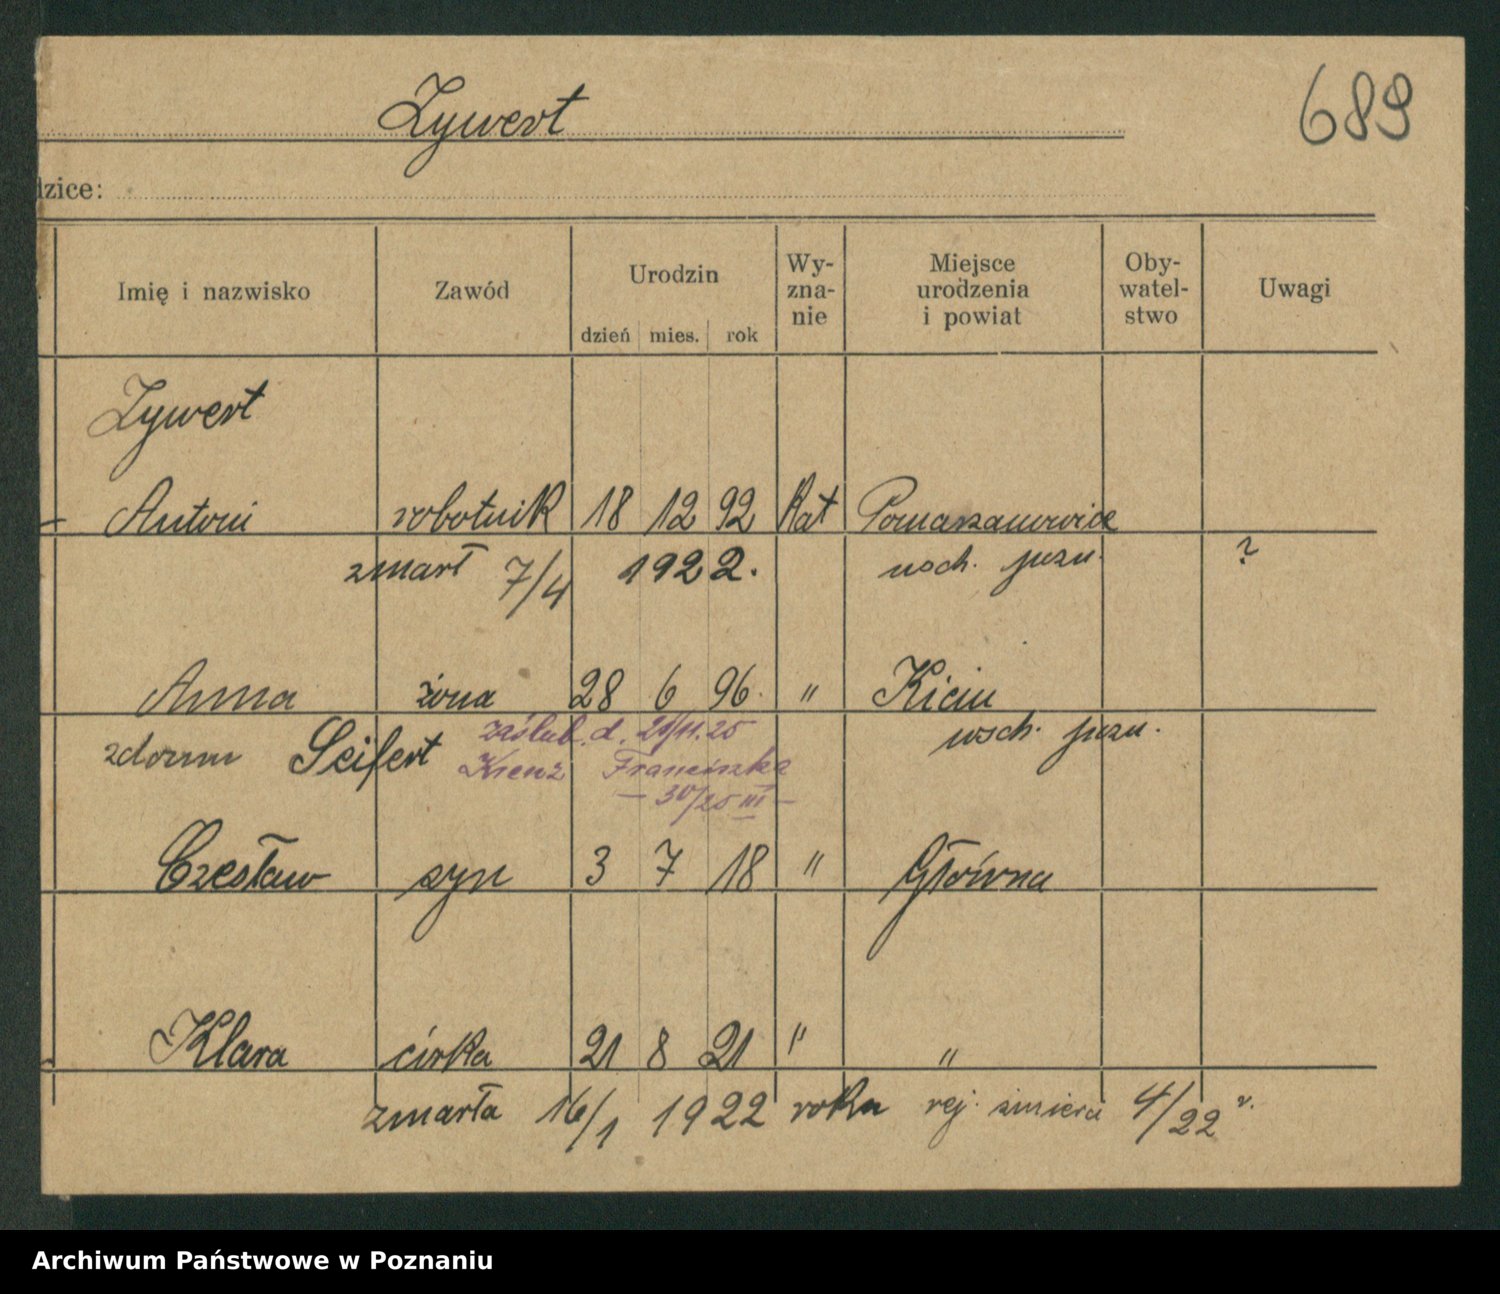 Zywert
689
dzice:
Imię i nazwisko Zawód Urodzin dzień mies. rok Wy-zna-nie Miejsce urodzenia i powiat Oby-watel-stwo Uwagi
Zywert
Antoni robotnik 18 12 92 Kat Pomarzanowice
zmarł 7/4 1922. wsch. pozn. ?
Anna żona 28 6 96. " Kicin
wsch. pozn.
zdomu Seifert zaślub. d. 21/11.25
Krenz Franciszka
— 30/25 III —
Czesław syn 3 7 18 " Główna
Klara córka 21 8 21 " "
zmarła 16/1 1922 roku rej. śmierci 4/22 r.
Archiwum Państwowe w Poznaniu